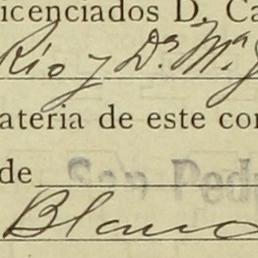 icenciados D. Ca
Río y D.ª M.ª J
ateria de este con
de San Pedr
Blanco